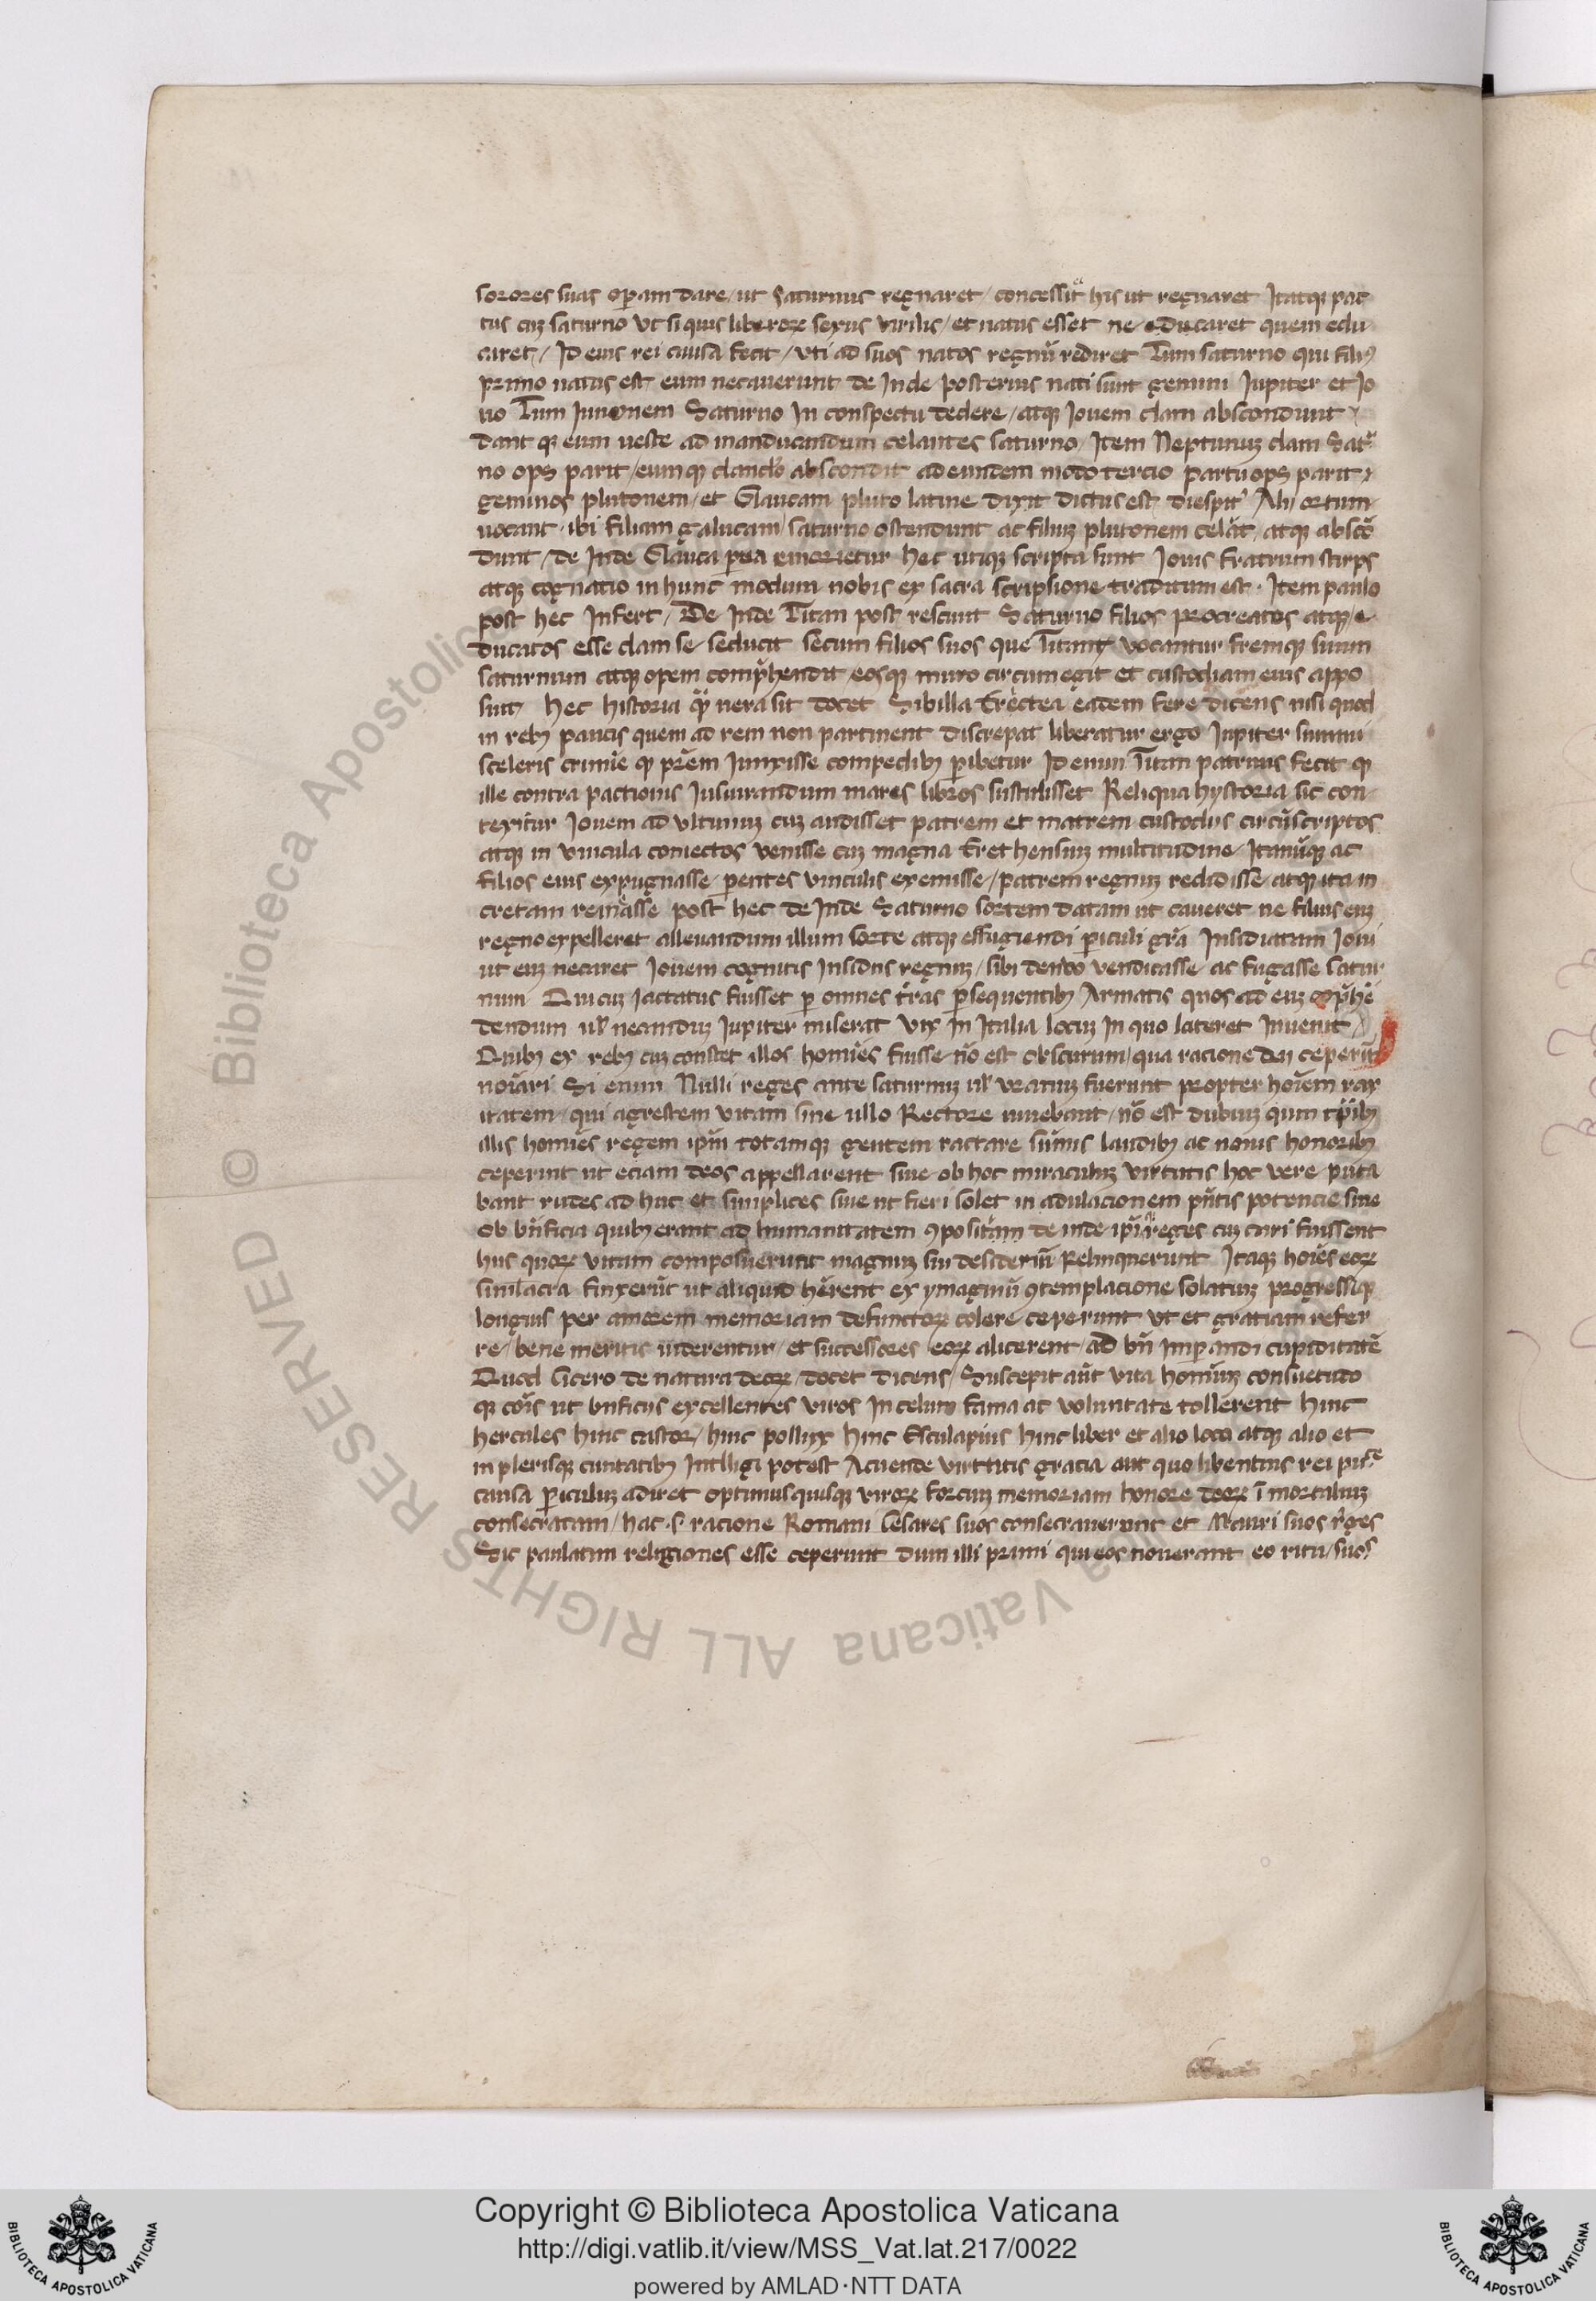 sorores suas opam dare / ut Saturnus regnaret / concessit et his ut regnaret Itatqꝫ pac
tus cuꝫ saturno Vt si quis liberorꝫ sexus virilis / et natus esset ne educaret quem edu
caret / Id eius rei causa fecit / vti ad suos natos regnū rediret Tum saturno qui filiꝰ
primo natus est eum necauerunt de Inde posterius nati sunt gemini Iupiter et Io
no Tum Iunonem Saturno In conspectu dedere / atqꝫ Iouem clam abscondunt
dant qꝫ eum ueste ad inanducandum celantes saturno / Item Neptunuꝫ clam Satr
no ops parit / eum qꝫ clanclo abscondit ad eundem modo tercio partu ops parit
geminos plutonem / et Glaucam pluto latine dixit dictus est diespitr Alii ortum
uocant ibi filiam galucam / saturno ostendunt ac filiuꝫ plutonem celāt atqꝫ abscō
dunt / de Inde Glauca parua emorietur hec utiqꝫ scripta sunt Iouis fratrum stirps
atqꝫ cognatio in hunc modum nobis ex sacra scripsione traditum est Item paulo
post hec Infert / De Inde Titan post rescunt Saturno filios procreatos atqꝫ / e
ducatos esse clam se seducit secum filios suos que Titani vocantur fremqꝫ suum
saturnum atqꝫ opem comprhendit eosqꝫ muro circumegit et custodiam eius appo
suit hec historia qꝫ uera sit docet Sibilla Erectea eadem fere dicens nisi quod
in rebꝫ paucis quem ad rem non partinent discrepat liberatur ergo Iupiter summi
sceleris crimīe qꝫ prēm Iunxisse compedibꝫ pibetur Id enim Titan patruus fecit qꝫ
ille contra pactionis Iusiurandum mares libros sustulisset Reliqua hystoria sic con
texitur Iouem ad vltimuꝫ cuꝫ audisset patrem et matrem custodiis circūscriptos
atqꝫ in vincula coniectos venisse cuꝫ magna Erethensiuꝫ multitudine Itanūqꝫ ac
filios eius expugnasse pentes vinculis exemisse / patrem regnuꝫ redidisse atqꝫ ita in
cretam remeasse post hec de Inde Saturno sortem datam ut caueret ne filius euꝫ
regno expelleret alleuandum illum sorte atqꝫ effugiendi piculi grā Insidiatum Ioui
ut euꝫ necaret Iouem cognitis Insidiis regnuꝫ / sibi denuo vendicasse ac fugasse satur
num Qui cuꝫ Iactatus fuisset p omnes tras psequentibꝫ Armatis quos ad euꝫ coprhē
dendum ul necanduꝫ Iupiter miserat Vix In Italia locuꝫ In quo lateret Inuenit
Quibꝫ ex rebꝫ cuꝫ constet illos homīes fuisse nō est obscurum / qua racione dii ceperūt
noīari Si enim Nulli reges ante saturnuꝫ ul vranuꝫ fuerunt propter hoīem rar
itatem / qui agrestem vitam sine ullo Rectore uiuebant / nō est dubiuꝫ quin tpibꝫ
illis homīes regem ipm totamqꝫ gentem ractare sūmis laudibꝫ ac nouis honoribꝫ
ceperint ut eciam deos appellarent siue ob hoc miraculuꝫ virtutis hoc vere puta
bant rudes ad huc et simplices siue ut fieri solet in adulacionem pntis potencie siue
ob bnficia quibꝫ erant ad humanitatem ꝯpositam de inde ipi reges cuꝫ cari fuissent
hiis quorꝫ vitam composuerunt magnuꝫ sui desideriū Relinquerunt Itaqꝫ hoīes eorꝫ
similacra finxerūt ut aliquid hērent ex ymaginū ꝯtemplacione solatiuꝫ progressiqꝫ
longius per amorem memoriam defunctorꝫ colere ceperunt Vt et gratiam refer
re / bene meritis uiderentur / et successores eorꝫ alicerent / ad bn Impandi cupiditatē
Quod Cicero de natura deorꝫ / docet dicens / Suscepit aūt vita hominuꝫ consuetudo
qꝫ cōis ut bnficiis excellentes viros In celum fama ac voluntate tollerent hinc
hercules hinc castor / hinc pollux hinc Esculapius hinc liber et alio loco atqꝫ alio et
in plerisqꝫ ciuitatibꝫ Intlligi potest Acuende virttitis gracia aut quo libentius rei pu
causa piculuꝫ adiret optimus quisqꝫ virorꝫ forciuꝫ memoriam honore deorꝫ ī mortaliuꝫ
consecratam / hac s racione Romani Cesares suos consecrauerunt et Mauri suos rges
Sic paulatim religiones esse ceperunt dum illi primi qui eos nouerant eo ritu / suos
© Biblioteca Apostolica Vaticana ALL RIGHTS RESERVED
Copyright © Biblioteca Apostolica Vaticana
http://digi.vatlib.it/view/MSS_Vat.lat.217/0022
powered by AMLAD·NTT DATA
BIBLIOTECA APOSTOLICA VATICANA
BIBLIOTECA APOSTOLICA VATICANA